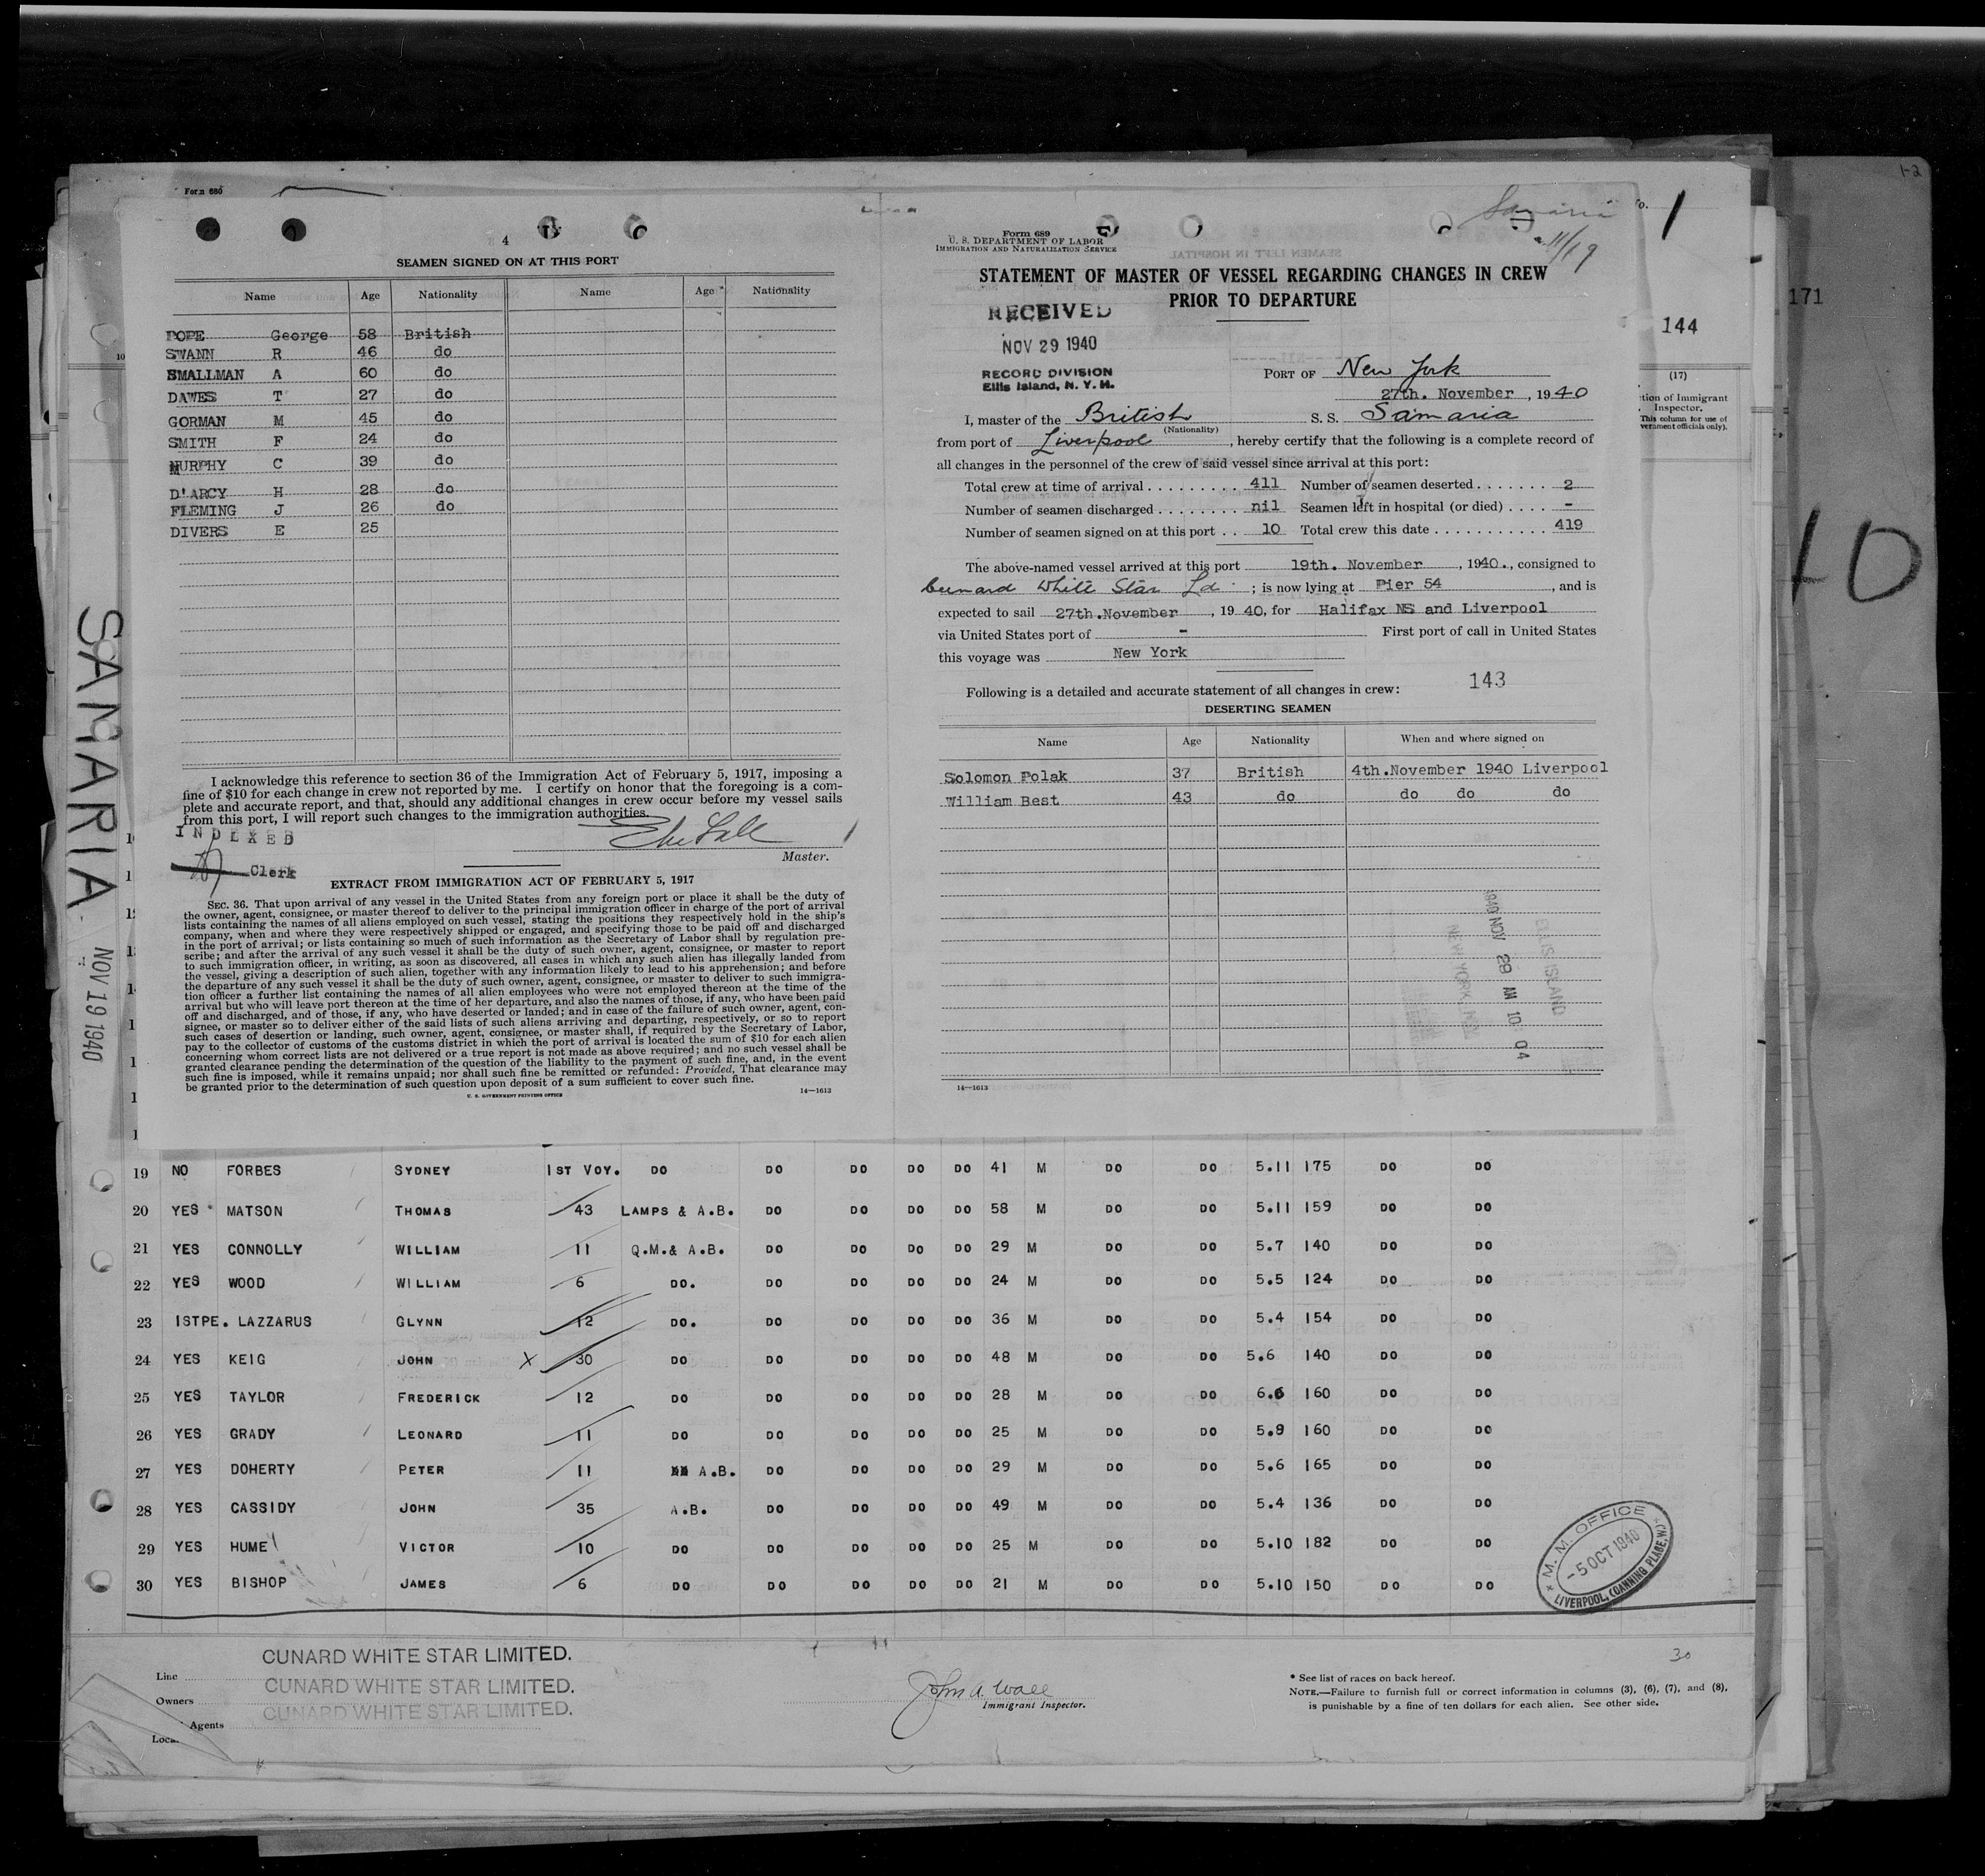 Form 680
4
SEAMEN SIGNED ON AT THIS PORT
Name Age Nationality Name Age Nationality
POPE George 58 British
SWANN R 46 do
SMALLMAN A 60 do
DAWES T 27 do
GORMAN M 45 do
SMITH F 24 do
MURPHY C 39 do
D'ARCY H 28 do
FLEMING J 26 do
DIVERS E 25
I acknowledge this reference to section 36 of the Immigration Act of February 5, 1917, imposing a
fine of $10 for each change in crew not reported by me. I certify on honor that the foregoing is a com-
plete and accurate report, and that, should any additional changes in crew occur before my vessel sails
from this port, I will report such changes to the immigration authorities.
INDEXED
Clerk
Master.
EXTRACT FROM IMMIGRATION ACT OF FEBRUARY 5, 1917
SEC. 36. That upon arrival of any vessel in the United States from any foreign port or place it shall be the duty of
the owner, agent, consignee, or master thereof to deliver to the principal immigration officer in charge of the port of arrival
lists containing the names of all aliens employed on such vessel, stating the positions they respectively hold in the ship's
company, when and where they were respectively shipped or engaged, and specifying those to be paid off and discharged
in the port of arrival; or lists containing so much of such information as the Secretary of Labor shall by regulation pre-
scribe; and after the arrival of any such vessel it shall be the duty of such owner, agent, consignee, or master to report
to such immigration officer, in writing, as soon as discovered, all cases in which any such alien has illegally landed from
the vessel, giving a description of such alien, together with any information likely to lead to his apprehension; and before
the departure of any such vessel it shall be the duty of such owner, agent, consignee, or master to deliver to such immigra-
tion officer a further list containing the names of all alien employees who were not employed thereon at the time of the
arrival but who will leave port thereon at the time of her departure, and also the names of those, if any, who have been paid
off and discharged, and of those, if any, who have deserted or landed; and in case of the failure of such owner, agent, con-
signee, or master so to deliver either of the said lists of such aliens arriving and departing, respectively, or so to report
such cases of desertion or landing, such owner, agent, consignee, or master shall, if required by the Secretary of Labor,
pay to the collector of customs of the customs district in which the port of arrival is located the sum of $10 for each alien
concerning whom correct lists are not delivered or a true report is not made as above required; and no such vessel shall be
granted clearance pending the determination of the question of the liability to the payment of such fine, and, in the event
such fine is imposed, while it remains unpaid; nor shall such fine be remitted or refunded: Provided, That clearance may
be granted prior to the determination of such question upon deposit of a sum sufficient to cover such fine.
U. S. GOVERNMENT PRINTING OFFICE 14—1613
Samaria
11/19
Form 689
U. S. DEPARTMENT OF LABOR
IMMIGRATION AND NATURALIZATION SERVICE
STATEMENT OF MASTER OF VESSEL REGARDING CHANGES IN CREW
PRIOR TO DEPARTURE
RECEIVED
NOV 29 1940
RECORD DIVISION
Ellis Island, N. Y. H.
PORT OF New York
27th. November , 1940
I, master of the British S. S. Samaria
(Nationality)
from port of Liverpool , hereby certify that the following is a complete record of
all changes in the personnel of the crew of said vessel since arrival at this port:
Total crew at time of arrival 411 Number of seamen deserted 2
Number of seamen discharged nil Seamen left in hospital (or died) -
Number of seamen signed on at this port 10 Total crew this date 419
The above-named vessel arrived at this port 19th. November , 1940., consigned to
Cunard White Star Ld ; is now lying at Pier 54 , and is
expected to sail 27th.November , 1940, for Halifax NS and Liverpool
via United States port of - First port of call in United States
this voyage was New York
143
Following is a detailed and accurate statement of all changes in crew:
DESERTING SEAMEN
Name Age Nationality When and where signed on
Solomon Polak 37 British 4th.November 1940 Liverpool
William Best 43 do do do do
1940 NOV 29 AM 10 04
ELLIS ISLAND
14—1613
1
1-2
171
144
(17)
tion of Immigrant
Inspector.
This column for use of
vernment officials only).
10
SAMARIA NOV 19 1940
19 NO FORBES SYDNEY 1ST VOY. DO DO DO DO DO 41 M DO DO 5.11 175 DO DO
20 YES MATSON THOMAS 43 LAMPS & A.B. DO DO DO DO 58 M DO DO 5.11 159 DO DO
21 YES CONNOLLY WILLIAM 11 Q.M.& A.B. DO DO DO DO 29 M DO DO 5.7 140 DO DO
22 YES WOOD WILLIAM 6 DO. DO DO DO DO 24 M DO DO 5.5 124 DO DO
23 1STPE. LAZZARUS GLYNN 12 DO. DO DO DO DO 36 M DO DO 5.4 154 DO DO
24 YES KEIG JOHN X 30 DO DO DO DO DO 48 M DO DO 5.6 140 DO DO
25 YES TAYLOR FREDERICK 12 DO DO DO DO DO 28 M DO DO 6.6 160 DO DO
26 YES GRADY LEONARD 11 DO DO DO DO DO 25 M DO DO 5.9 160 DO DO
27 YES DOHERTY PETER 11 A.B. DO DO DO DO 29 M DO DO 5.6 165 DO DO
28 YES CASSIDY JOHN 35 A.B. DO DO DO DO 49 M DO DO 5.4 136 DO DO
29 YES HUME VICTOR 10 DO DO DO DO DO 25 M DO DO 5.10 182 DO DO
30 YES BISHOP JAMES 6 DO DO DO DO DO 21 M DO DO 5.10 150 DO DO
M. M. OFFICE
-5 OCT 1940
LIVERPOOL, (CANNING PLACE, No.)
CUNARD WHITE STAR LIMITED.
Line CUNARD WHITE STAR LIMITED.
Owners CUNARD WHITE STAR LIMITED.
Agents
Local
John A. Wall
Immigrant Inspector.
30
* See list of races on back hereof.
NOTE.—Failure to furnish full or correct information in columns (3), (6), (7), and (8),
is punishable by a fine of ten dollars for each alien. See other side.